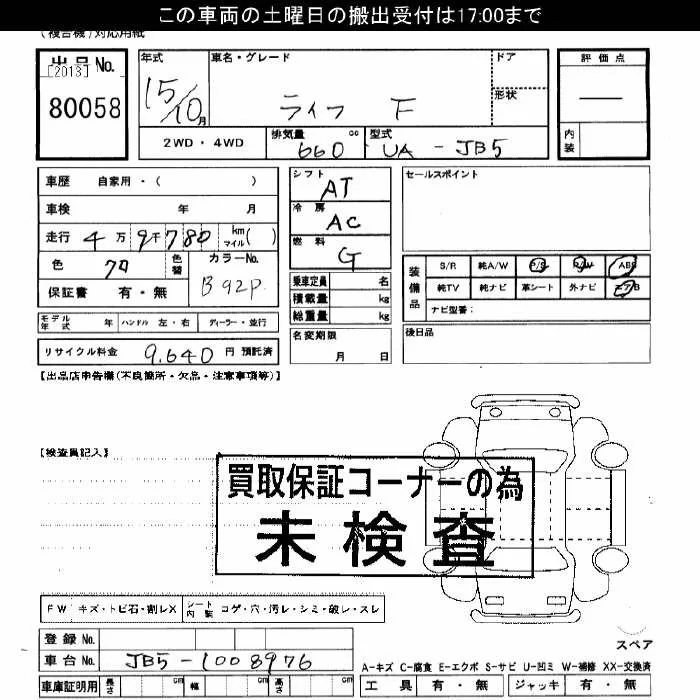 この車両の土曜日の搬出受付は17:00まで
(複合機)対応用紙
出品No.
[2013]
80058
年式
15/10月
車名・グレード
ライフ F
ドア
形状
評価点
内装
2WD・4WD
排気量 cc
660
型式
UA - JB5
車歴 自家用・( )
車検 年 月
走行 4万 9千780 km マイル( )
色 クロ
色替
カラーNo.
B92P
保証書 有・無
シフト
AT
冷房
AC
燃料
G
セールスポイント
乗車定員 名
積載量 kg
総重量 kg
装備品
S/R 純A/W P/S P/W ABS
純TV 純ナビ 革シート 外ナビ エアB
ナビ型番:
モデル年式 年 ハンドル 左・右 ディーラー・並行
リサイクル料金 9.640 円 預託済
名変期限
月 日
後日品
【出品店申告欄(不良箇所・欠品・注意事項等)】
【検査員記入】
買取保証コーナーの為
未検査
FW キズ・トビ石・割レX
シート内装 コゲ・穴・汚レ・シミ・破レ・スレ
登録No.
車台No. JB5-1008976
スペア
A-キズ C-腐食 E-エクボ S-サビ U-凹ミ W-補修 XX-交換済
車庫証明用 長さ cm 幅 cm 高さ cm
工具 有・無 ジャッキ 有・無